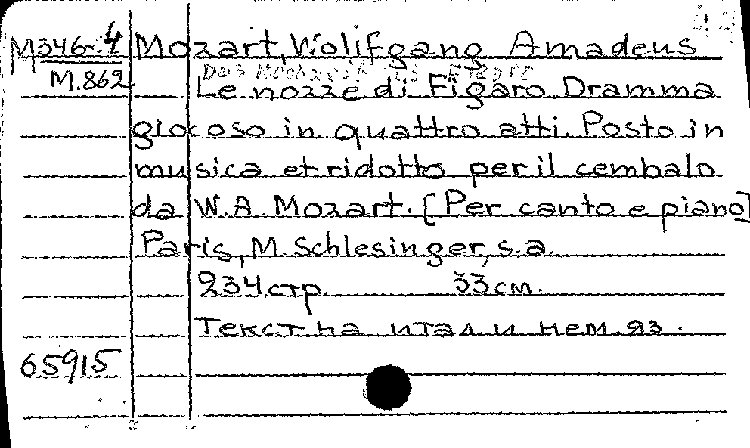 M346-4 Mozart, Wolifgang Amadeus
M.862
Le nozze di Figaro. Dramma
giocoso in quattro atti. Posto in
musica et ridotto per il cembalo
da W.A. Mozart. [Per canto e piano]
Paris, M. Schlesinger, s.a.
234 стр. 33 см.
Текст на итал и нем. яз.
65915